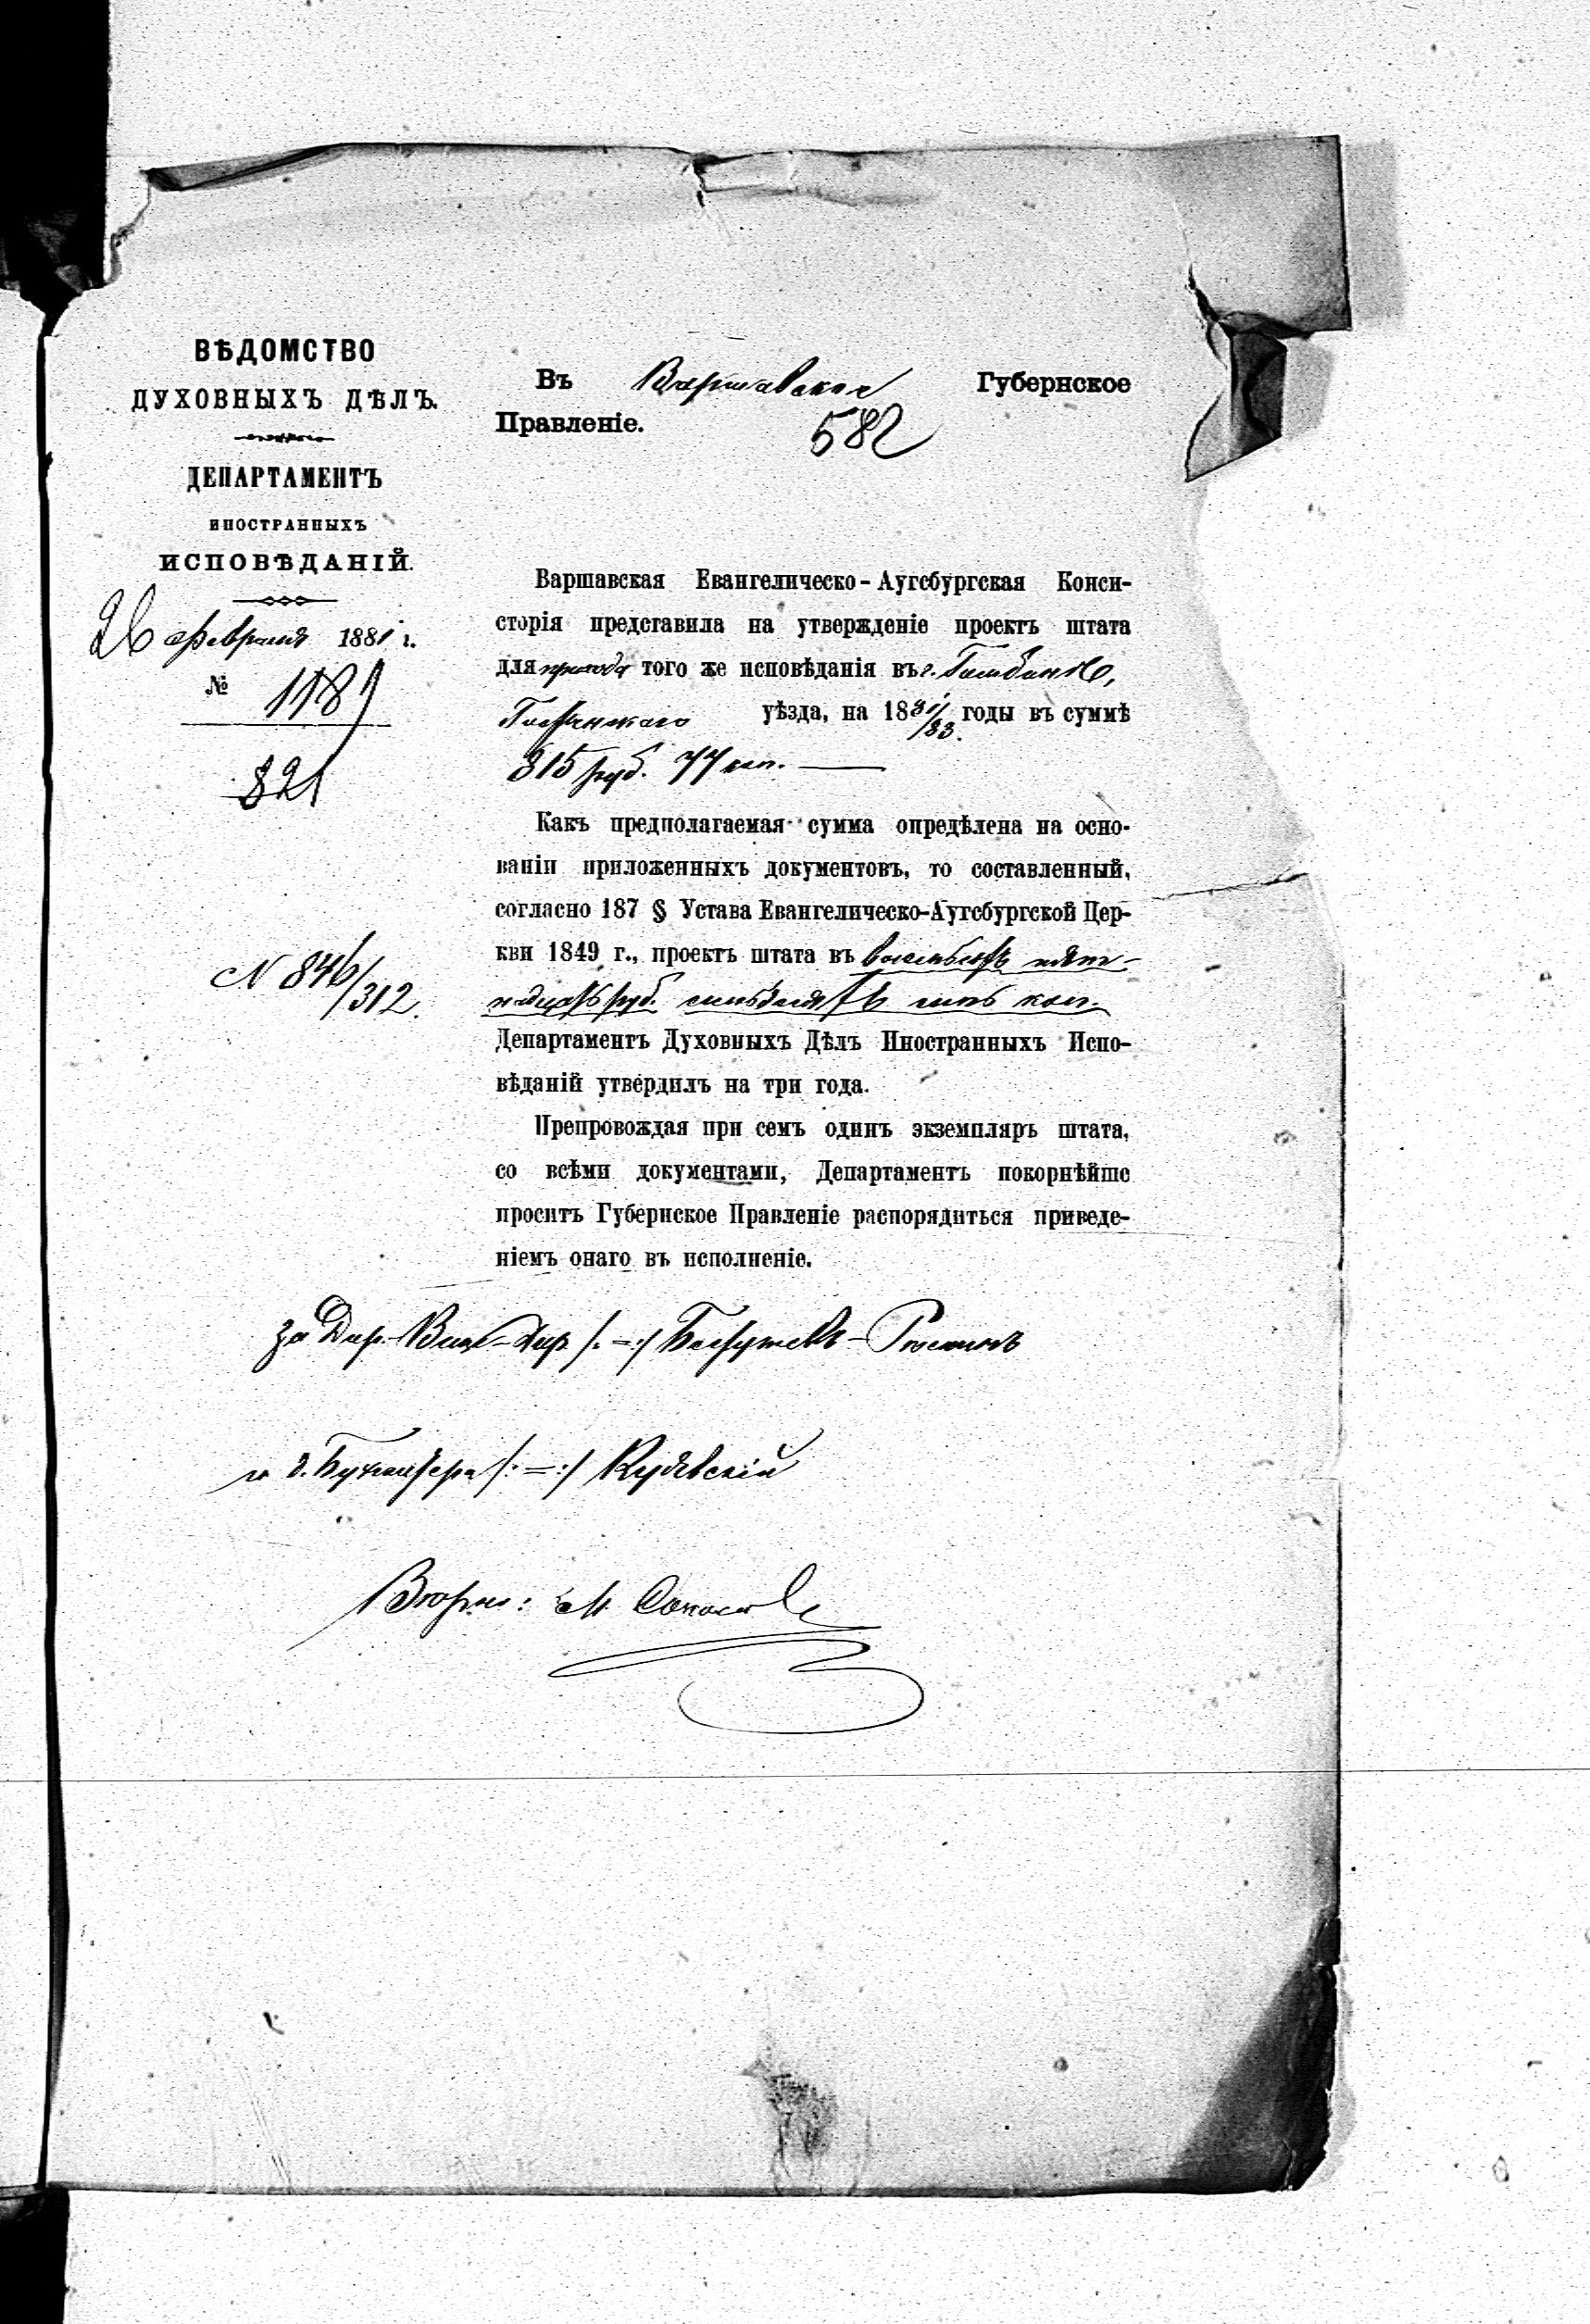 ВѢДОМСТВО
ДУХОВНЫХЪ ДѢЛЪ.
ДЕПАРТАМЕНТЪ
ИНОСТРАННЫХЪ
ИСПОВѢДАНІЙ.
26 февраля 1881 г.
№ 1181
821
N 846/312.
Въ Варшавское Губернское
Правленіе.
582
Варшавская Евангелическо-Аугсбургская Конси-
сторія представила на утвержденіе проектъ штата
для прихода того же исповѣданія въ г. Гомбинѣ,
Гостынскаго уѣзда, на 1881/83. годы въ суммѣ
815 руб. 77 коп.
Какъ предполагаемая сумма опредѣлена на осно-
ваніи приложенныхъ документовъ, то составленный,
согласно 187 § Устава Евангелическо-Аугсбургской Цер-
кви 1849 г., проектъ штата въ восемьсотъ пят-
надцать руб. семьдесятъ семь коп.
Департаментъ Духовныхъ Дѣлъ Иностранныхъ Испо-
вѣданій утвердилъ на три года.
Препровождая при семъ одинъ экземпляръ штата,
со всѣми документами, Департаментъ покорнѣйше
проситъ Губернское Правленіе распорядиться приведе-
ніемъ онаго въ исполненіе.
за Дир. Вице-Дир. /:=:/ Бестужевъ-Рюминъ
и д. Бухгалтера /:=:/ Кудевскій
Вѣрно: М.